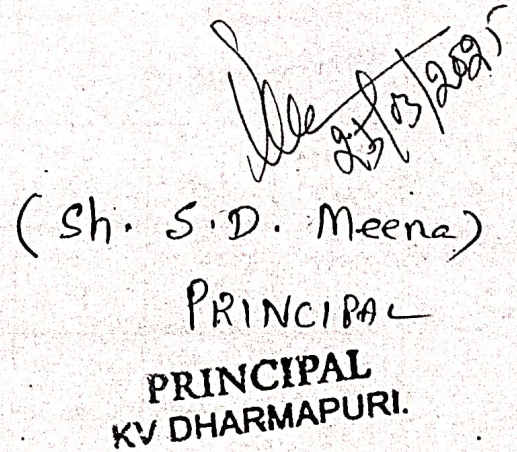 25/03/2025
(Sh. S.D. Meena)
PRINCIPAL
PRINCIPAL
KV DHARMAPURI.